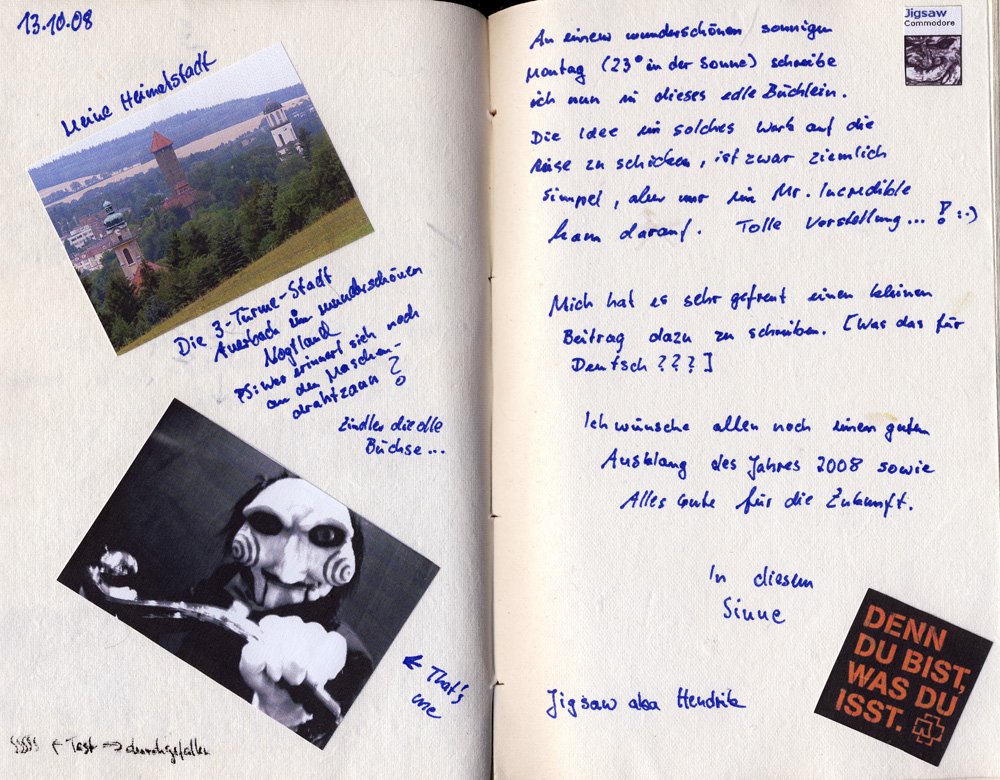 13.10.08
Meine Heimatstadt
Die 3-Türme-Stadt
Auerbach im wunderschönen
Vogtland
PS: Wer erinnert sich noch
an den Maschen-
drahtzaun?
Zindler die olle
Büchse...
← That's
me
§§§§§ ← Test → durchgefallen
Jigsaw
Commodore
An einem wunderschönen sonnigen
Montag (23° in der Sonne) schreibe
ich nun in dieses edle Büchlein.
Die Idee ein solches Werk auf die
Reise zu schicken, ist zwar ziemlich
simpel, aber nur ein Mr. Incredible
kam darauf. Tolle Vorstellung...! :-)
Mich hat es sehr gefreut einen kleinen
Beitrag dazu zu schreiben. [Was das für
Deutsch ???]
Ich wünsche allen noch einen guten
Ausklang des Jahres 2008 sowie
Alles Gute für die Zukunft.
In diesem
Sinne
Jigsaw aka Hendrik
DENN
DU BIST,
WAS DU
ISST.